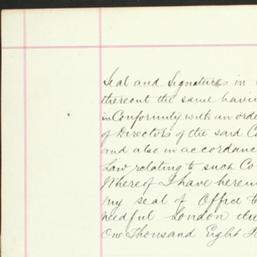 Seal and Signatures in
thereout the same havin
in Conformity with an orde
of Directors of the said Co
and also in accordanc
Law relating to such Co
Whereof I have hereun
my seal of Office to
needful London
One Thousand Eight H